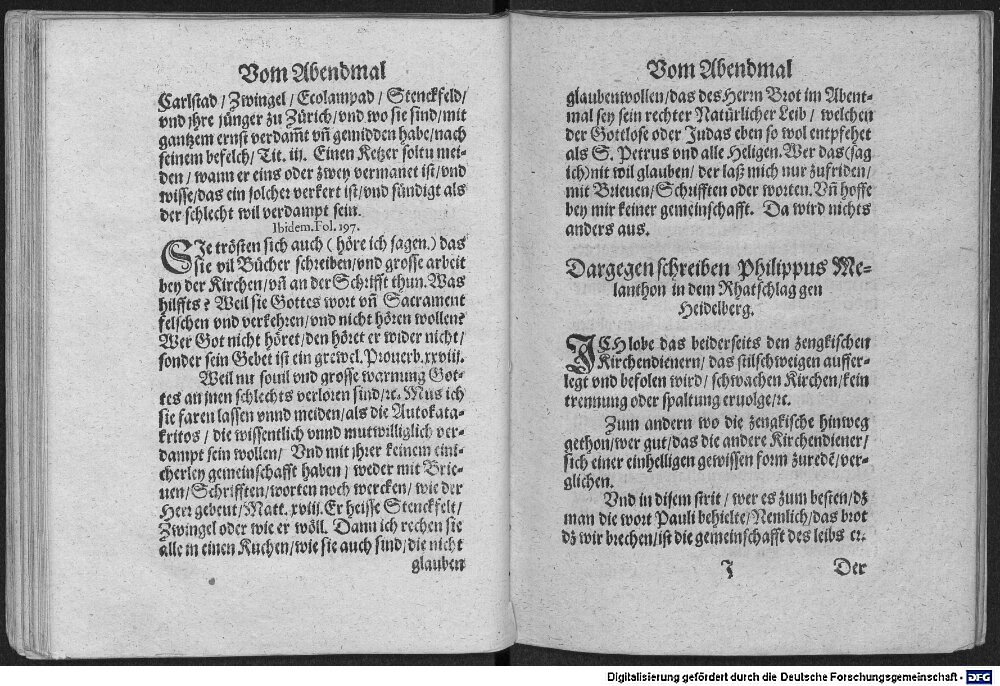 Vom Abendmal
Carlstad / Zwingel / Ecolampad / Stenckfeld /
vnd jhre jünger zu Zürich / vnd wo sie sind / mit
gantzem ernst verdam̃t vñ gemidden habe / nach
seinem befelch / Tit. iij. Einen Ketzer soltu mei-
den / wann er eins oder zwey vermanet ist / vnd
wisse / das ein solcher verkert ist / vnd sündigt als
der schlecht wil verdampt sein.
Ibidem. Fol. 197.
SJe trösten sich auch ( höre ich sagen.) das
sie vil Bücher schreiben / vnd grosse arbeit
bey der Kirchen / vñ an der Schrifft thun. Was
hilffts? Weil sie Gottes wort vñ Sacrament
felschen vnd verkehren / vnd nicht hören wollen?
Wer Got nicht höret / den höret er wider nicht /
sonder sein Gebet ist ein grewel. Prouerb. xxviij.
Weil nu souil vnd grosse warnung Got-
tes an jnen schlechts verloren sind / ꝛc. Mus ich
sie faren lassen vnnd meiden / als die Autokata-
kritos / die wissentlich vnnd mutwilliglich ver-
dampt sein wollen / Vnd mit jhrer keinem eini-
cherley gemeinschafft haben / weder mit Brie-
uen / Schrifften / worten noch wercken / wie der
Herr gebeut / Matt. xviij. Er heisse Stenckfelt /
Zwingel oder wie er wöll. Dann ich rechen sie
alle in einen Kuchen / wie sie auch sind / die nicht
glauben
Vom Abendmal
glauben wollen / das des Herrn Brot im Abent-
mal sey sein rechter Natürlicher Leib / welchen
der Gottlose oder Judas eben so wol entpfehet
als S. Petrus vnd alle Heligen. Wer das (sag
ich) nit wil glauben / der laß mich nur zufriden /
mit Brieuen / Schrifften oder worten. Vñ hoffe
bey mir keiner gemeinschafft. Da wird nichts
anders aus.
Dargegen schreiben Philippus Me-
lanthon in dem Rhatschlag gen
Heidelberg.
JCH lobe das beiderseits den zengkischen
Kirchendienern / das stilschweigen auffer-
legt vnd befolen wird / schwachen Kirchen / kein
trennung oder spaltung eruolge / ꝛc.
Zum andern wo die zengkische hinweg
gethon / wer gut / das die andere Kirchendiener /
sich einer einhelligen gewissen form zuredẽ / ver-
glichen.
Vnd in disem strit / wer es zum besten / dz
man die wort Pauli behielte / Nemlich / das brot
dz wir brechen / ist die gemeinschafft des leibs ꝛc.
J Der
Digitalisierung gefördert durch die Deutsche Forschungsgemeinschaft - DFG